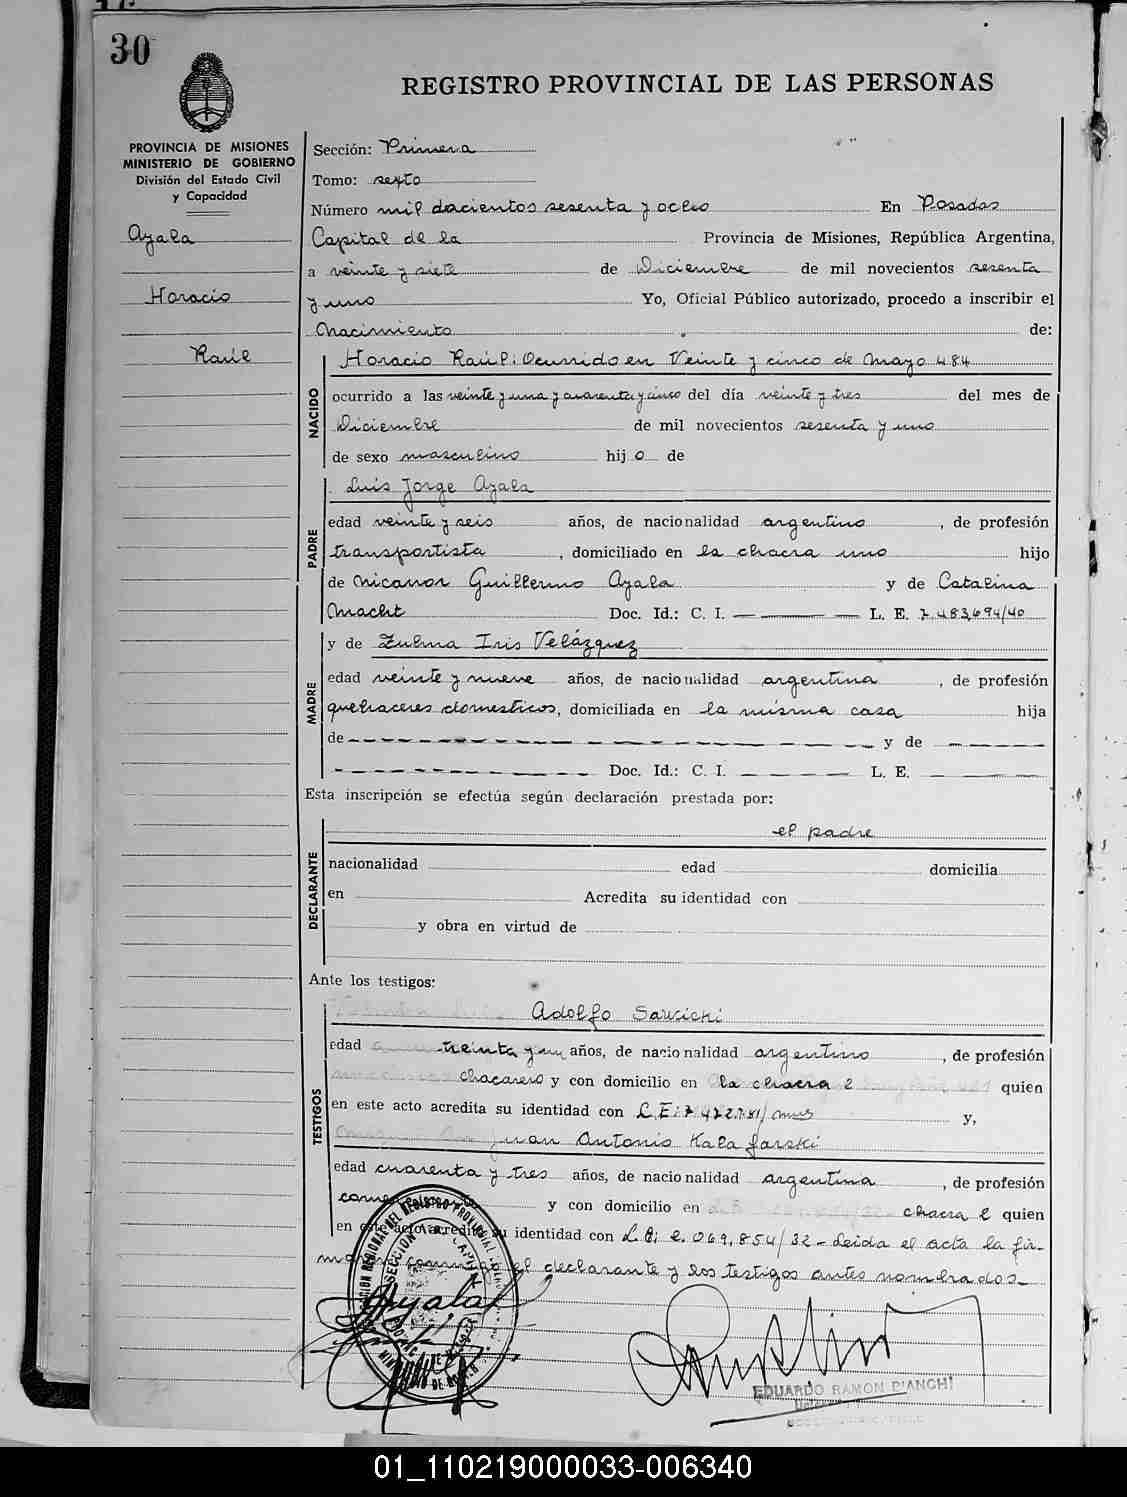 30
REGISTRO PROVINCIAL DE LAS PERSONAS
PROVINCIA DE MISIONES
MINISTERIO DE GOBIERNO
División del Estado Civil
y Capacidad
Ayala
Horacio
Raúl
Sección: Primera
Tomo: sexto
Número mil docientos sesenta y ocho En Posadas
Capital de la Provincia de Misiones, República Argentina,
a veinte y siete de Diciembre de mil novecientos sesenta
y uno Yo, Oficial Público autorizado, procedo a inscribir el
Nacimiento de:
NACIDO
Horacio Raúl: Ocurrido en Veinte y cinco de Mayo 484
ocurrido a las veinte y una y cuarenta y cinco del día veinte y tres del mes de
Diciembre de mil novecientos sesenta y uno
de sexo masculino hijo de
PADRE
Luis Jorge Ayala
edad veinte y seis años, de nacionalidad argentino, de profesión
transportista, domiciliado en la chacra uno hijo
de Nicanor Guillermo Ayala y de Catalina
Macht Doc. Id.: C. I. — L. E. 7.483,694/40
MADRE
y de Zulma Iris Velázquez
edad veinte y nueve años, de nacionalidad argentina, de profesión
quehaceres domesticos, domiciliada en la misma casa hija
de — y de —
— Doc. Id.: C. I. — L. E. —
Esta inscripción se efectúa según declaración prestada por:
DECLARANTE
el padre
nacionalidad edad domicilia
en Acredita su identidad con
y obra en virtud de
Ante los testigos:
TESTIGOS
Adolfo Sawicki
edad treinta y un años, de nacionalidad argentino, de profesión
chacarero y con domicilio en la chacra 2 quien
en este acto acredita su identidad con L.E: y,
Juan Antonio Kalafarski
edad cuarenta y tres años, de nacionalidad argentina, de profesión
y con domicilio en chacra 2 quien
en este acto acredita su identidad con L.E; 2,069,854/32 - Leida el acta la fir-
el declarante y los testigos antes nombrados_
Ayala
EDUARDO RAMON BIANCHI
01_110219000033-006340